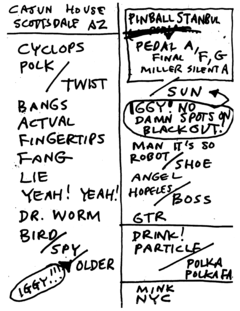 CAJUN HOUSE
SCOTTSDALE AZ
CYCLOPS
POLK
/TWIST
BANGS
ACTUAL
FINGERTIPS
FANG
LIE
YEAH! YEAH!
DR. WORM
BIRD/
SPY
OLDER
IGGY!!!
PINBALL STANBUL
PEDAL A/
FINAL F, G
MILLER SILENT A
SUN
IGGY! NO
DAMN SPOTS ON
BLACKOUT!
MAN IT'S SO
ROBOT/
SHOE
ANGEL
HOPELES/
BOSS
GTR
DRINK!
PARTICLE/
POLKA
POLKA FA
MINK
NYC